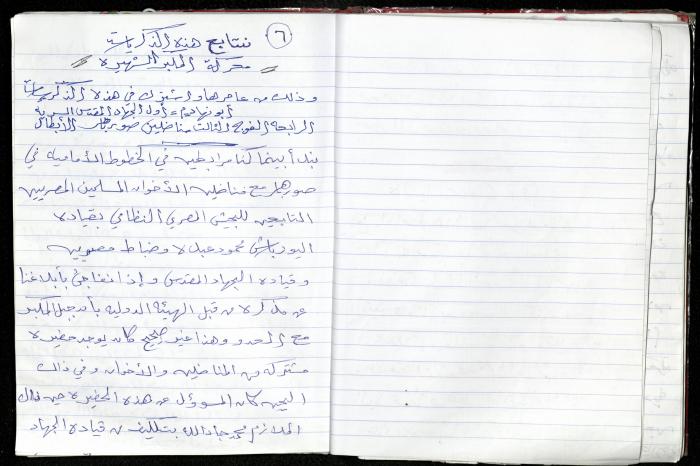 ٦
نتابع هذه الذكريات
معركة المكبر الشهيرة
وذلك من عاصرها واشترك في هذه الذكريات
أبو نهاد = أول الجهاد المقدس السرية
الرابعة الفوج الثالث مناضلين صور باهر الأبطال
نبدأ بينما كنا مرابطين في الخطوط الأمامية في
صور باهر مع مناضلين الأخوان المسلمين المصريين
التابعين للجيش المصري النظامي بقيادة
اليوزباشي محمود عبده وضباط مصريين
وقيادة الجهاد المقدس وإذا نفاجئ بأبلاغنا
عن مذكرة من قبل الهيئة الدولية بأن جبل المكبر
مع العدو وهذا غير صحيح كان يوجد حضيرة
مشتركة من المناضلين والأخوان وفي ذلك
الحين كان المسؤول عن هذه الحضيرة حين ذاك
الملازم محمد جادالله بتكليف من قيادة الجهاد